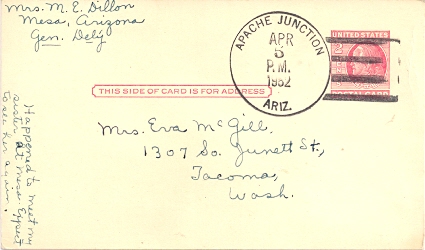 Mrs. M. E. Dillon
Mesa, Arizona
Gen. Dely
APACHE JUNCTION
APR
3
P.M.
1952
ARIZ.
UNITED STATES
THIS SIDE OF CARD IS FOR ADDRESS
Mrs. Eva McGill,
1307 So. Junett St.,
Tacoma,
Wash.
Happened to meet my
sister at Mesa. Expect
to see her again.